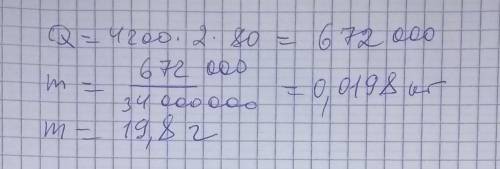 Q = 4200 · 2 · 80 = 672 000
m = 672 000 / 34 000 000 = 0,0198 кг
m = 19,8 г